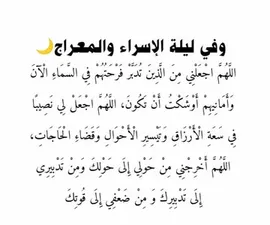 وفي ليلة الإسراء والمعراج🌙
اللَّهُمَّ اجْعَلْنِي مِنَ الَّذِينَ تُدَبَّرُ فَرْحَتُهُمْ فِي السَّمَاءِ الْآنَ
وَأَمَانِيهِمْ أَوْشَكَتْ أَنْ تَكُونَ، اللَّهُمَّ اجْعَلْ لِي نَصِيبًا
فِي سَعَةِ الْأَرْزَاقِ وَتَيْسِيرِ الْأَحْوَالِ وَقَضَاءِ الْحَاجَاتِ،
اللَّهُمَّ أَخْرِجْنِي مِنْ حَوْلِي إِلَى حَوْلِكَ وَمِنْ تَدْبِيرِي
إِلَى تَدْبِيرِكَ وَ مِنْ ضَعْفِي إِلَى قُوتِكَ